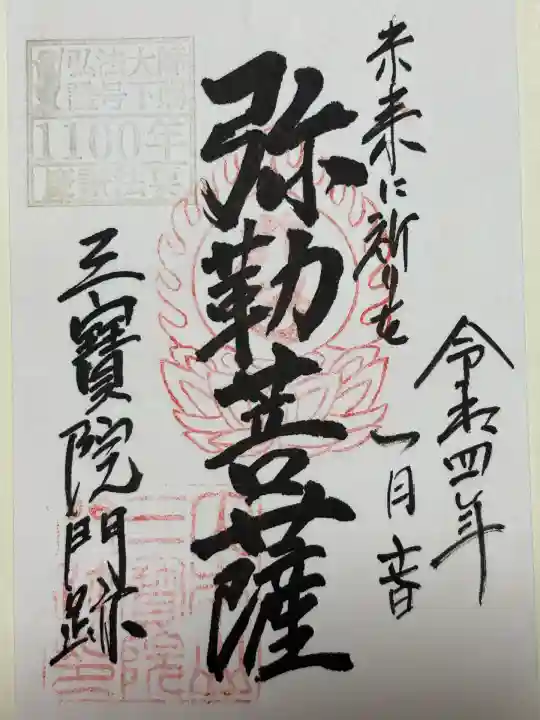 未来に祈りを
令和四年
一月十六日
弥勒菩薩
三寳院門跡
弘法大師
諡号下賜
1100年
慶讃法要